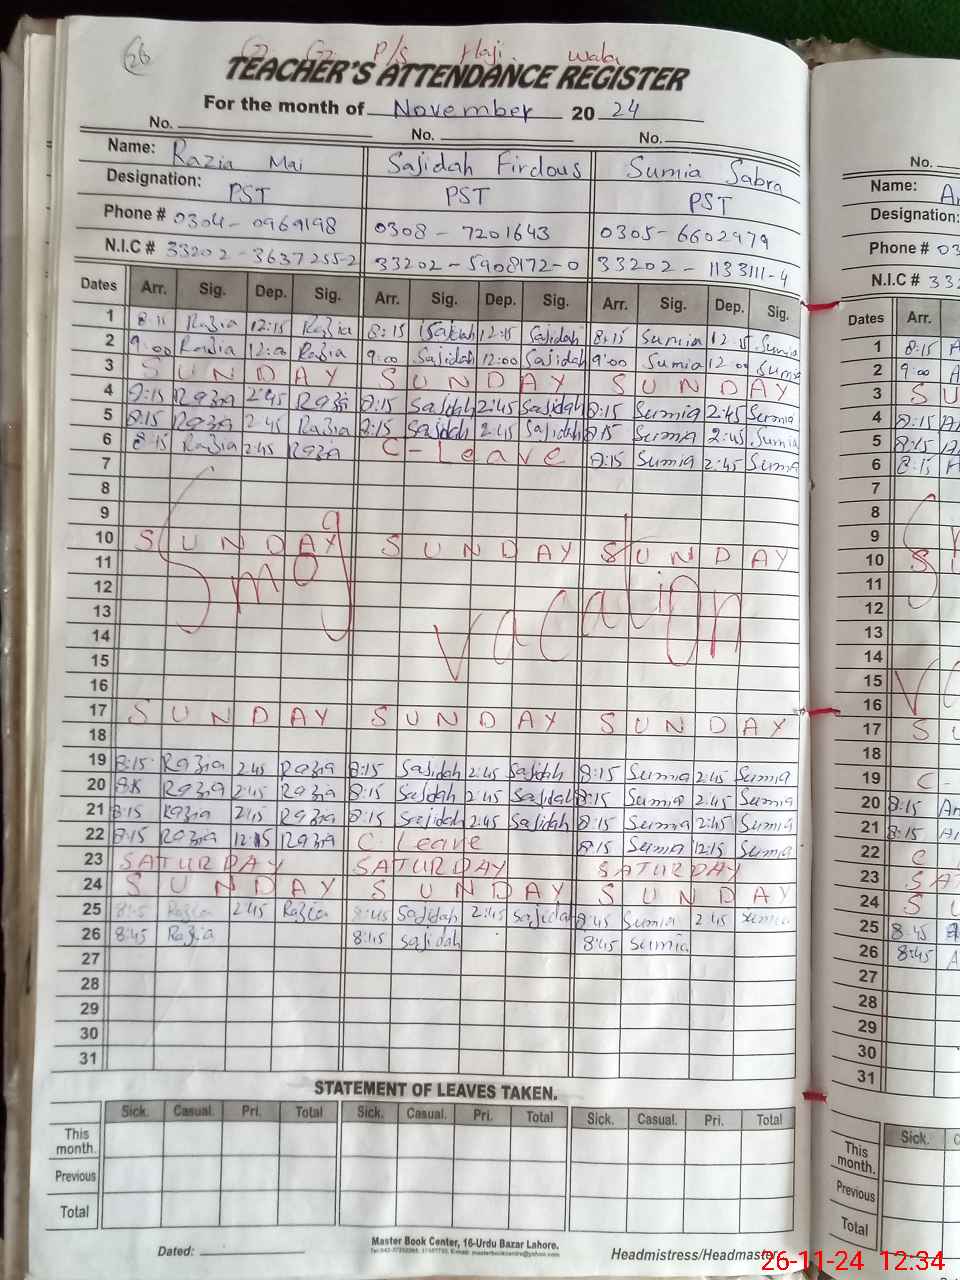 26 G G P/S Haji wala
TEACHER'S ATTENDANCE REGISTER
For the month of November 20 24
No. No. No.
Name: Razia Mai Sajidah Firdous Sumia Sabra
Designation: PST PST PST
Phone # 0304-0969198 0308-7201643 0305-6602979
N.I.C # 33202-3637255-2 33202-5908172-0 33202-1133111-4
Dates Arr. Sig. Dep. Sig. Arr. Sig. Dep. Sig. Arr. Sig. Dep. Sig.
1 Razia 12:15 Razia 8:15 12:15 Sajidah 8:15 Sumia 12:15 Sumia
2 9:00 Razia 12:00 Razia 9:00 Sajidah 12:00 Sajidah 9:00 Sumia 12:00 Sumia
3 SUNDAY SUNDAY SUNDAY
4 8:15 Razia 2:45 Razia 8:15 Sajidah 2:45 Sajidah 8:15 Sumia 2:45 Sumia
5 8:15 Razia 2:45 Razia 8:15 Sajidah 2:45 Sajidah 8:15 Sumia 2:45 Sumia
6 8:15 Razia 2:45 Razia C-Leave 8:15 Sumia 2:45 Sumia
7
8
9
10 SUNDAY SUNDAY SUNDAY
11
Smog vacation
12
13
14
15
16
17 SUNDAY SUNDAY SUNDAY
18
19 8:15 Razia 2:45 Razia 8:15 Sajidah 2:45 Sajidah 8:15 Sumia 2:45 Sumia
20 8:15 Razia 2:45 Razia 8:15 Sajidah 2:45 Sajidah 8:15 Sumia 2:45 Sumia
21 8:15 Razia 2:45 Razia 8:15 Sajidah 2:45 Sajidah 8:15 Sumia 2:45 Sumia
22 8:15 Razia 12:15 Razia C Leave 8:15 Sumia 12:15 Sumia
23 SATURDAY SATURDAY SATURDAY
24 SUNDAY SUNDAY SUNDAY
25 Razia 2:45 Razia 8:45 Sajidah 2:45 Sajidah 8:45 Sumia 2:45 Sumia
26 8:45 Razia 8:45 Sajidah 8:45 Sumia
27
28
29
30
31
STATEMENT OF LEAVES TAKEN.
Sick. Casual. Pri. Total Sick. Casual. Pri. Total Sick. Casual. Pri. Total
This month.
Previous
Total
Dated:
Master Book Center, 16-Urdu Bazar Lahore.
Headmistress/Headmaster
No.
Name:
Designation:
Phone # 03
N.I.C # 332
Dates Arr.
1 8:15
2 9:00
3 SU
4 8:15
5 8:15
6 8:15
7
8
9
10 S
11
12
13
14
15
16
17 S
18
19 C-
20 8:15
21 8:15
22 C
23 SA
24 S
25 8:45
26 8:45
27
28
29
30
31
Sick.
This month.
Previous
Total
26-11-24 12:34